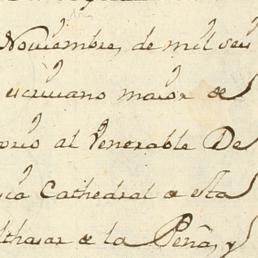 Noviembre, de mil sete
escriuano maior de
orio al Venerable De
sia Cathedral de esta
lthasar de la Peña, y